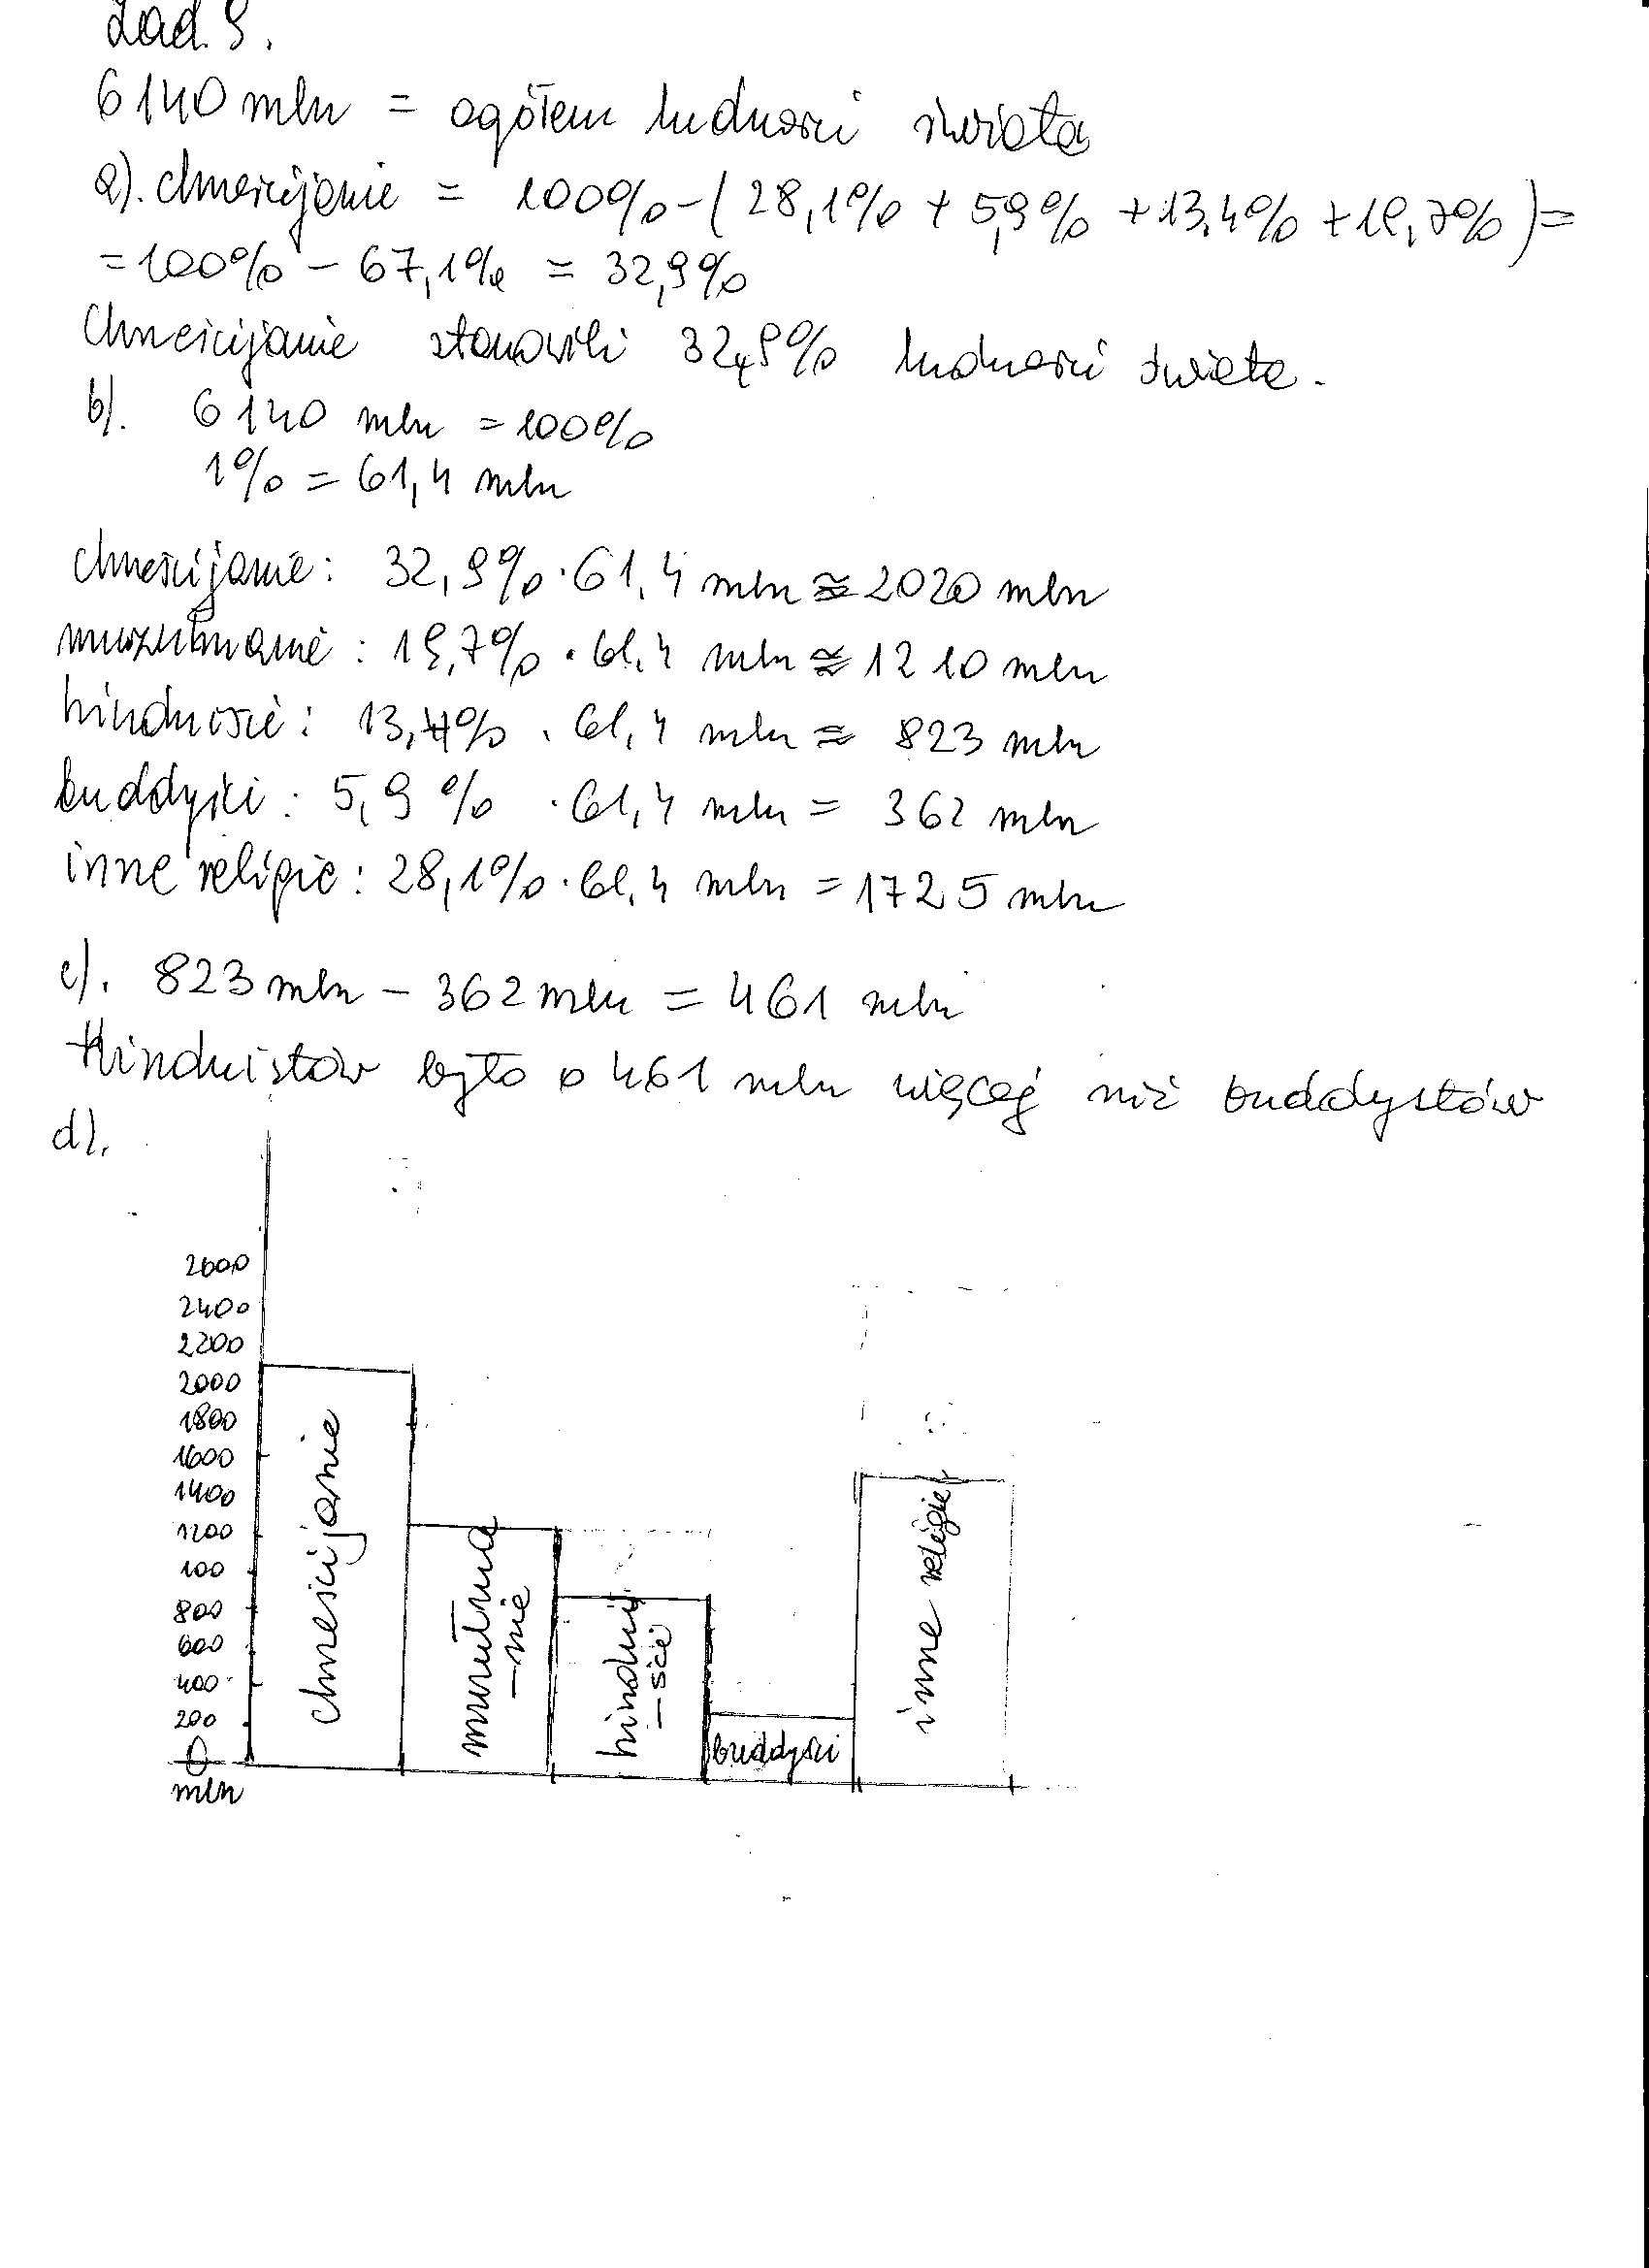 Zad. 9.
6140 mln = ogółem ludności świata
a). chrześcijanie = 100% - (28,1% + 5,9% + 13,4% + 19,7%) =
= 100% - 67,1% = 32,9%
Chrześcijanie stanowili 32,9% ludności świata.
b). 6140 mln = 100%
1% = 61,4 mln
chrześcijanie: 32,9% · 61,4 mln ≈ 2020 mln
muzułmanie: 19,7% · 61,4 mln ≈ 1210 mln
hinduiści: 13,4% · 61,4 mln ≈ 823 mln
buddyści: 5,9% · 61,4 mln = 362 mln
inne religie: 28,1% · 61,4 mln = 1725 mln
c). 823 mln - 362 mln = 461 mln
Hinduistów było o 461 mln więcej niż buddystów
d).
2600
2400
2200
2000
1800
1600
1400
1200
100
800
600
400
200
0
mln
chrześcijanie
muzułma
-nie
hindui
-ści
buddyści
inne religie